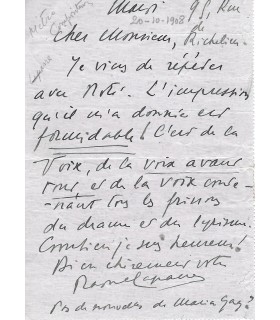 Mardi 95, Rue
20-10-1908 de Richelieu
Cher Monsieur,
Je viens de répéter
avec Noté. L'impression
qu'il m'a donnée est
formidable ! C'est de la
Voix, de la voix avant
tout, et de la voix conte-
-nant tous les frissons
du drame et du lyrisme.
Combien je suis heureux !
Bien chèrement votre
Raoul Laparra
Pas de nouvelles de Maria Gay ?